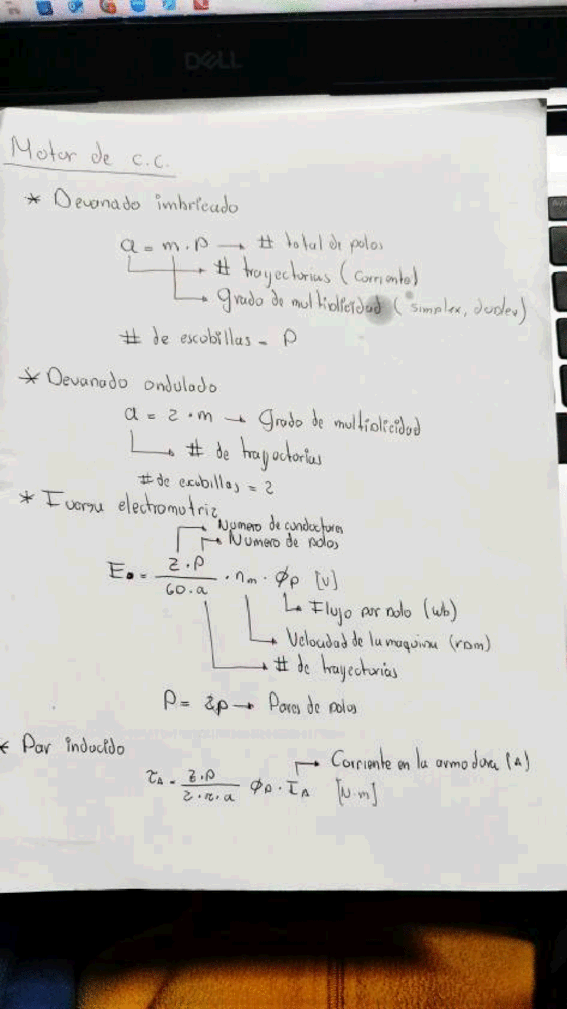 DELL
Motor de c.c.
* Devanado imbricado
a = m . p → # total de polos
→ # trayectorias (corriente)
→ grado de multiplicidad (simplex, duplex)
# de escobillas = P
* Devanado ondulado
a = 2 . m → Grado de multiplicidad
→ # de trayectorias
# de escobillas = 2
* Fuerza electromotriz
→ Numero de conductores
→ Numero de polos
E_A = Z . P / 60 . a . n_m . Φ_p [V]
→ Flujo por polo (wb)
→ Velocidad de la maquina (rpm)
→ # de trayectorias
P = 2p → Pares de polos
* Par inducido
→ Corriente en la armadura (A)
τ_A = Z . P / 2 . π . a Φ_p . I_A [N.m]